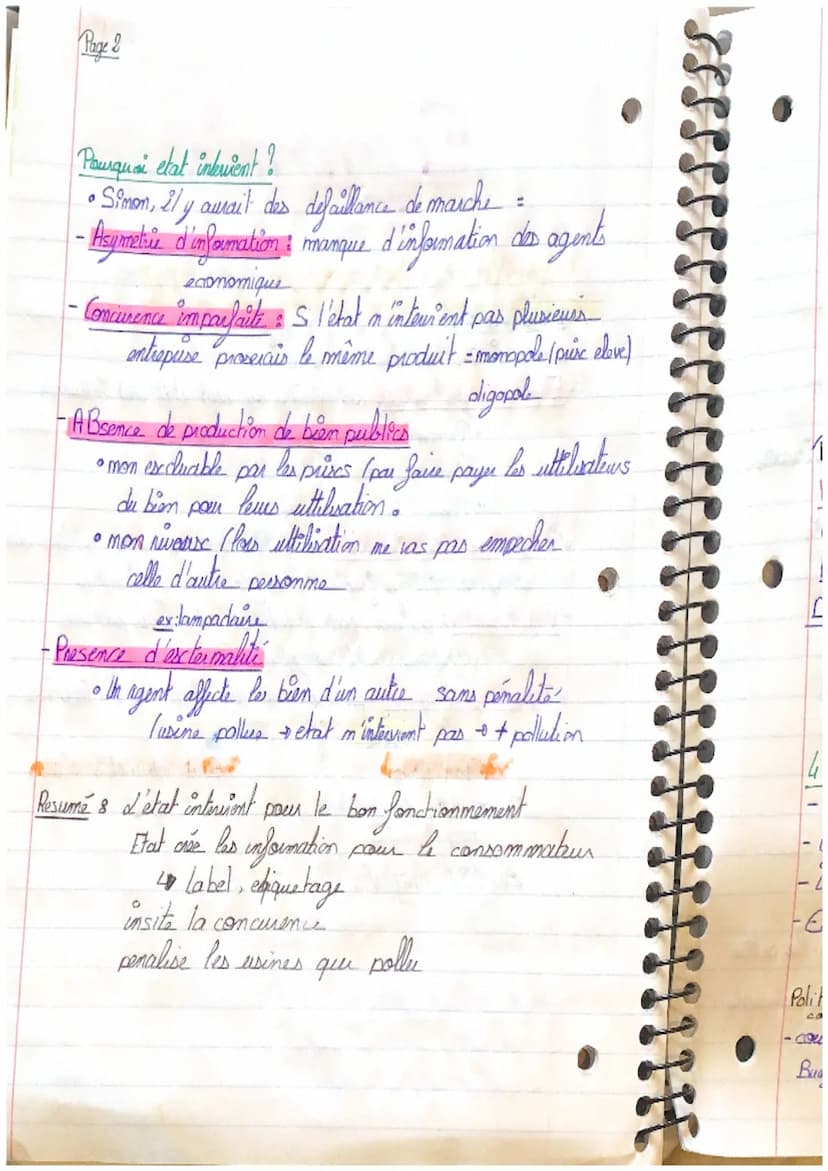 Page 2
Pourquoi etat intervient ?
• Sinon, il y aurait des defaillance de marche =
- Asymetrie d'information : manque d'information des agents
economique
- Concurence imparfaite : S l'état n'intervient pas plusieurs
entreprise le même produit = monopole (prix eleve)
oligopole
- ABsence de production de bien publics
• non excluable par les prix (pas faire payer les uttilisateurs
du bien pour leurs uttilisation.
• non rivaux (leurs uttilisation ne vas pas empecher
celle d'autre personne
ex: lampadaire
- Presence d'externalité
• Un agent affecte les bien d'un autre sans pénalité
(usine pollue → etat n'intervient pas → + pollution
Resumé : L'état intervient pour le bon fonctionnement
Etat crée les information pour le consommateur
↳ label, etiquetage
insite la concurence
penalise les usines que pollu
4
-
-
-
- E
Polit
co
- cou
Bu